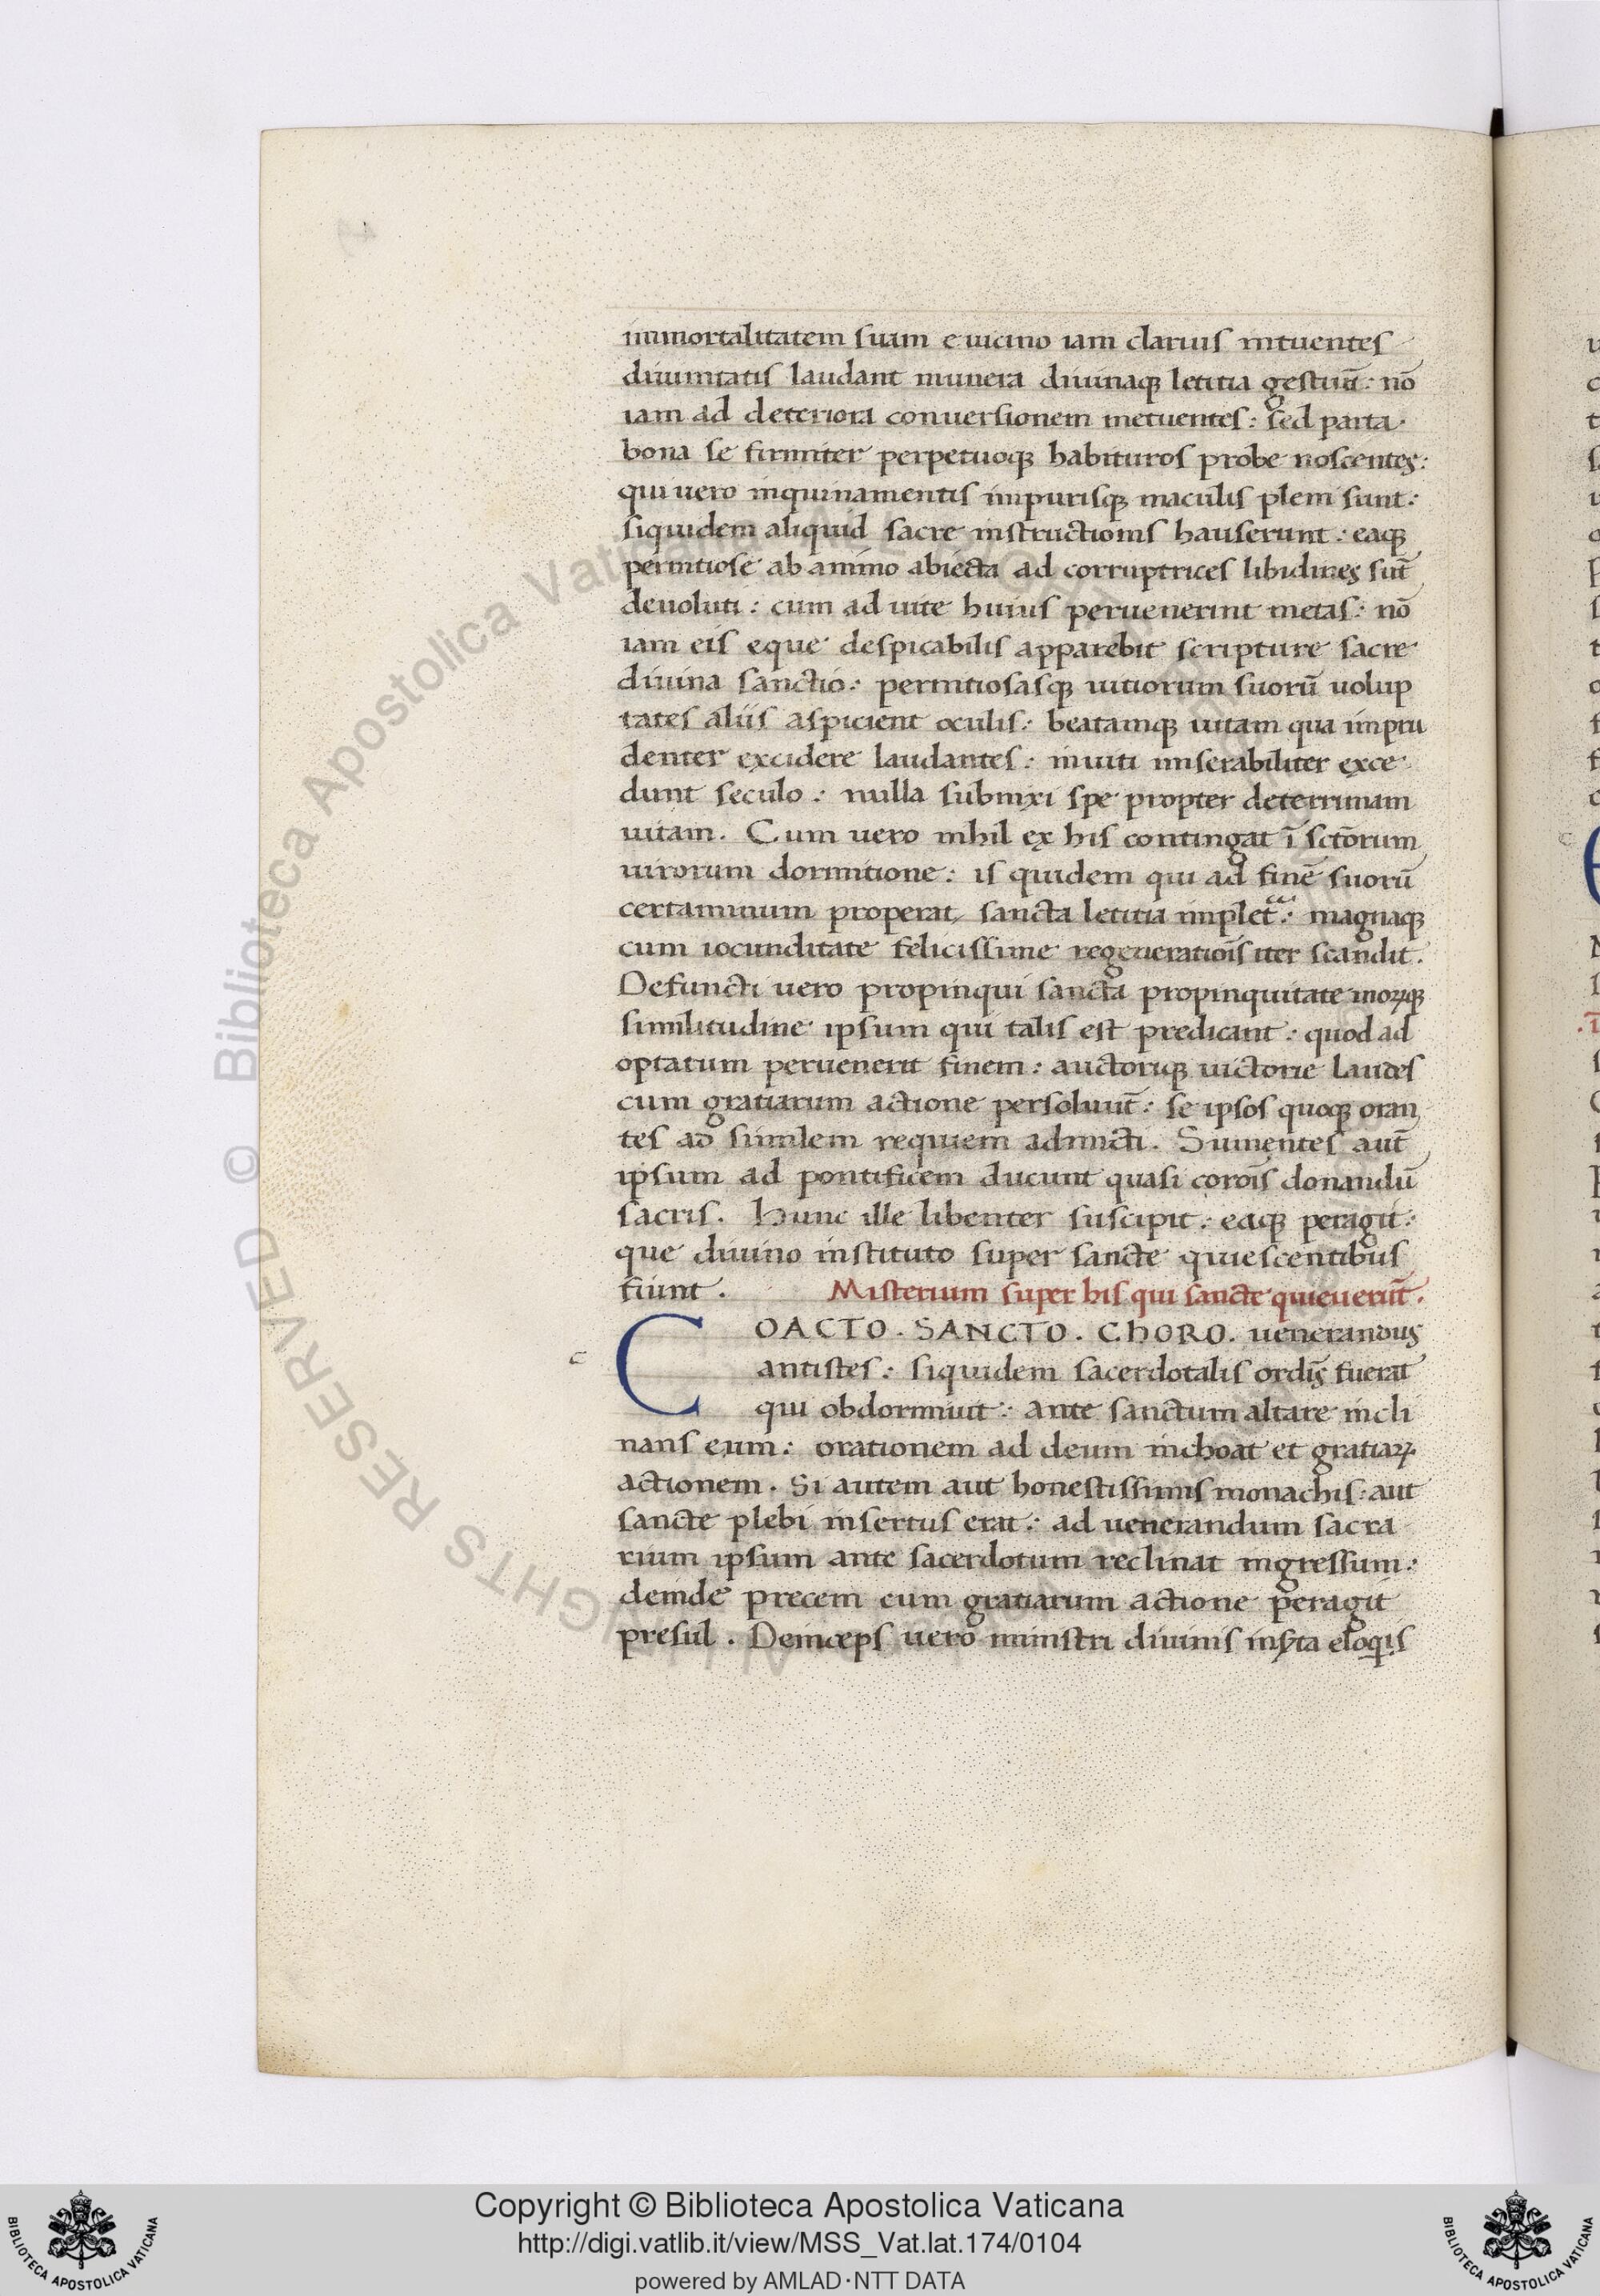 immortalitatem suam e uicino iam clarius intuentes
diuinitatis laudant munera diuinaqꝫ letitia gestiūt: nō
iam ad deteriora conuersionem metuentes: sed parta
bona se firmiter perpetuoqꝫ habituros probe noscentes:
qui uero inquinamentis impurisqꝫ maculis pleni sunt:
siquidem aliquid sacre instructionis hauserunt: eaqꝫ
pernitiose ab animo abiecta ad corruptrices libidines sūt
deuoluti: cum ad uite huius peruenerint metas: nō
iam eis eque despicabilis apparebit scripture sacre
diuina sanctio: pernitiosasqꝫ uitiorum suorū uolup
tates aliis aspicient oculis: beatamqꝫ uitam qua impru
denter excidere laudantes: inuiti miserabiliter exce
dunt seculo: nulla subnixi spe propter deterrimam
uitam. Cum uero nihil ex his contingat ī sctōrum
uirorum dormitione: is quidem qui ad finē suorū
certaminum properat, sancta letitia impletᷓ: magnaqꝫ
cum iocunditate felicissime regeneratiōis iter scandit.
Defuncti uero propinqui sancta propinquitate moꝝqꝫ
similitudine ipsum qui talis est predicant: quod ad
optatum peruenerit finem: auctoriqꝫ uictorie laudes
cum gratiarum actione persoluūt: se ipsos quoqꝫ oran
tes ad similem requiem admicti. Sumentes aut̄
ipsum ad pontificem ducunt quasi corōis donandū
sacris. Hunc ille libenter suscipit: eaqꝫ peragit:
que diuino instituto super sancte quiescentibus
fiunt. Misterium super his qui sancte quieuerūt.
COACTO. SANCTO. CHORO. uenerandus
c
antistes: siquidem sacerdotalis ordīs fuerat
qui obdormiuit: ante sanctum altare incli
nans eum: orationem ad deum inchoat et gratiaꝝ
actionem. Si autem aut honestissimis monachis: aut
sancte plebi insertus erat: ad uenerandum sacra
rium ipsum ante sacerdotum reclinat ingressum:
deinde precem cum gratiarum actione peragit
presul. Deinceps uero ministri diuinis insita eloqis
© Biblioteca Apostolica Vaticana ALL RIGHTS RESERVED
Copyright © Biblioteca Apostolica Vaticana
http://digi.vatlib.it/view/MSS_Vat.lat.174/0104
powered by AMLAD·NTT DATA
BIBLIOTECA APOSTOLICA VATICANA
BIBLIOTECA APOSTOLICA VATICANA